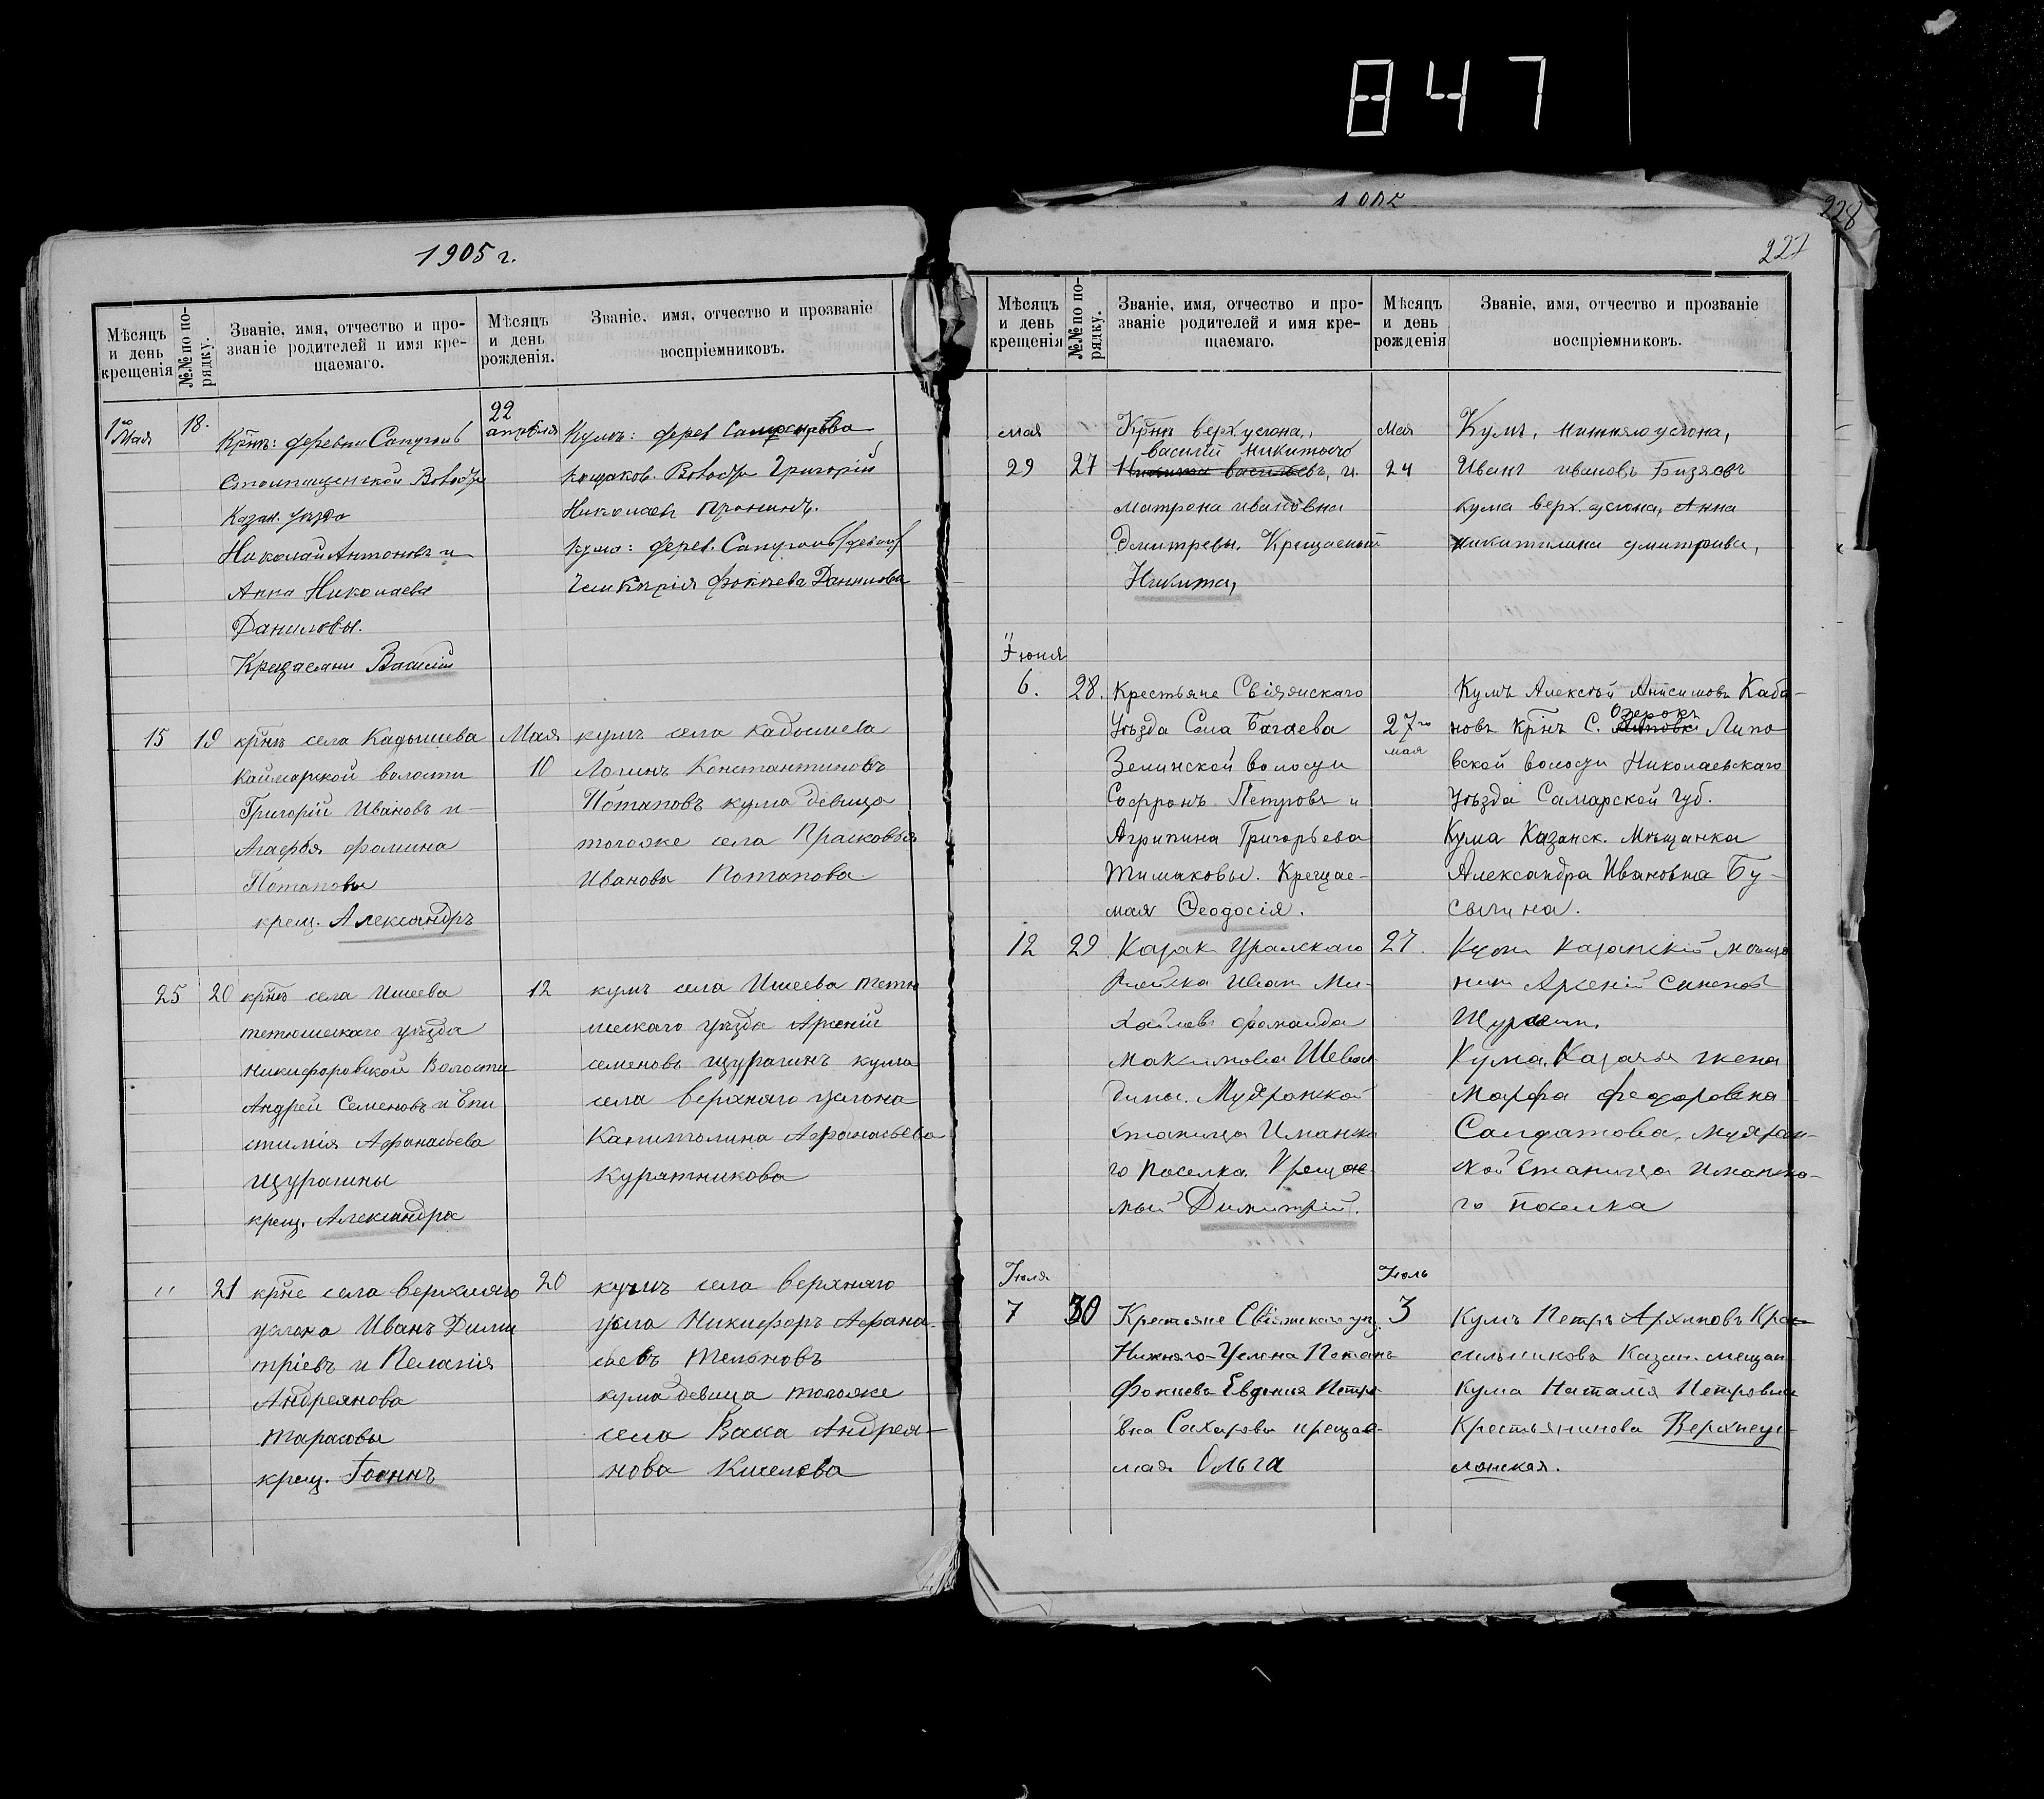 847
1905 г.
Мѣсяцъ и день крещенія
№№ по порядку.
Званіе, имя, отчество и про-
званіе родителей и имя кре-
щаемаго.
Мѣсяцъ и день рожденія.
Званіе, имя, отчество и прозваніе
воспріемниковъ.
1го Мая
18.
Крнъ: деревни Сапуголь
Волости
Казан. уѣзда
Николай Антоновъ и
Анна Николаева
Даниловы.
Крещаемы Василій
22 апреля
Кумъ: дерев
Волости Григорій
Николаевъ Пронинъ.
Кума: дерев. Сапуголь (девица)
Гликерія Фокеева Данилова
15
19
крнъ села Кадышева
Каймарской волости
Григорій Ивановъ и
Агафья Фомина
Потаповы
крещ. Александръ
Мая
10
кумъ села Кадышева
Логинъ Константиновъ
Потаповъ кума девица
тогоже села Прасковья
Иванова Потапова.
25
20
крнъ села Ишеева
тетюшскаго уѣзда
никифоровской Волости
Андрей Семеновъ и Епи
стимія Афанасьева
Щурагины
крещ. Александра
12
кумъ села Ишеева тетю
шскаго уѣзда Арсеній
семеновъ щурагинъ кума
села верхняго услона
Капитолина Афанасьева
Курятникова
"
21
крне села верхняго
услона Иванъ Дими
тріевъ и Пелагія
Андреянова
Тарасовы
крещ. Іоаннъ
20
кумъ села верхняго
усла Никифоръ Афана-
сьевъ Тельновъ
кума девица тогоже
села Васса Андрея-
нова Киселева
228
227
Мѣсяцъ и день крещенія
№№ по порядку.
Званіе, имя, отчество и про-
званіе родителей и имя кре-
щаемаго.
Мѣсяцъ и день рожденія
Званіе, имя, отчество и прозваніе
воспріемниковъ.
мая
29
27
Крнъ верхуслона,
василій никитычъ
васильевъ, и
матрона ивановна
Дмитревы. Крещаемый
Никита,
мая
24
Кумъ, нижняго услона,
Иванъ ивановъ Бизяевъ
кума верх. услона, Анна
никитична дмитрива,
Іюня
6.
28.
Крестьяне Свіяжскаго
Уѣзда Села Багаева
волости
Софронъ Петровъ и
Агрипина Григорьева
Тимаковы. Крещае-
мая Феодосія.
27го
мая
Кумъ Алексѣй Анисимовъ Каба-
новъ Крнъ С. Озерокъ Липо
вской волости Николаевскаго
Уѣзда Самарской Губ.
Кума Казанск. Мѣщанка
Александра Ивановна Бу-
сыгина.
12
29
Казак Уралскаго
Войска Иван Ми-
хайлов
Максимова
Мудранской
станица Иманко
го Поселка. Крещае-
мый Димитрій.
27.
Кум казанскій мещ
нин Арсеній
Кума. Казачья жена
Марфа Феодоровна
Солдатова, Мудран-
ской Станица Иманко-
го поселка
Іюля
7
30
Крестьяне Свіяжскаго уѣз.
Нижняго-Услона Потапъ
Фокѣевъ Евдокія Петро
вна Сахаровы крещае-
мая Ольга
Іюль
3
Кумъ Петръ Архиповъ Кра
сильниковъ Казан. мещан
Кума Наталія Петровна
Крестьянинова Верхнеус-
лонская.